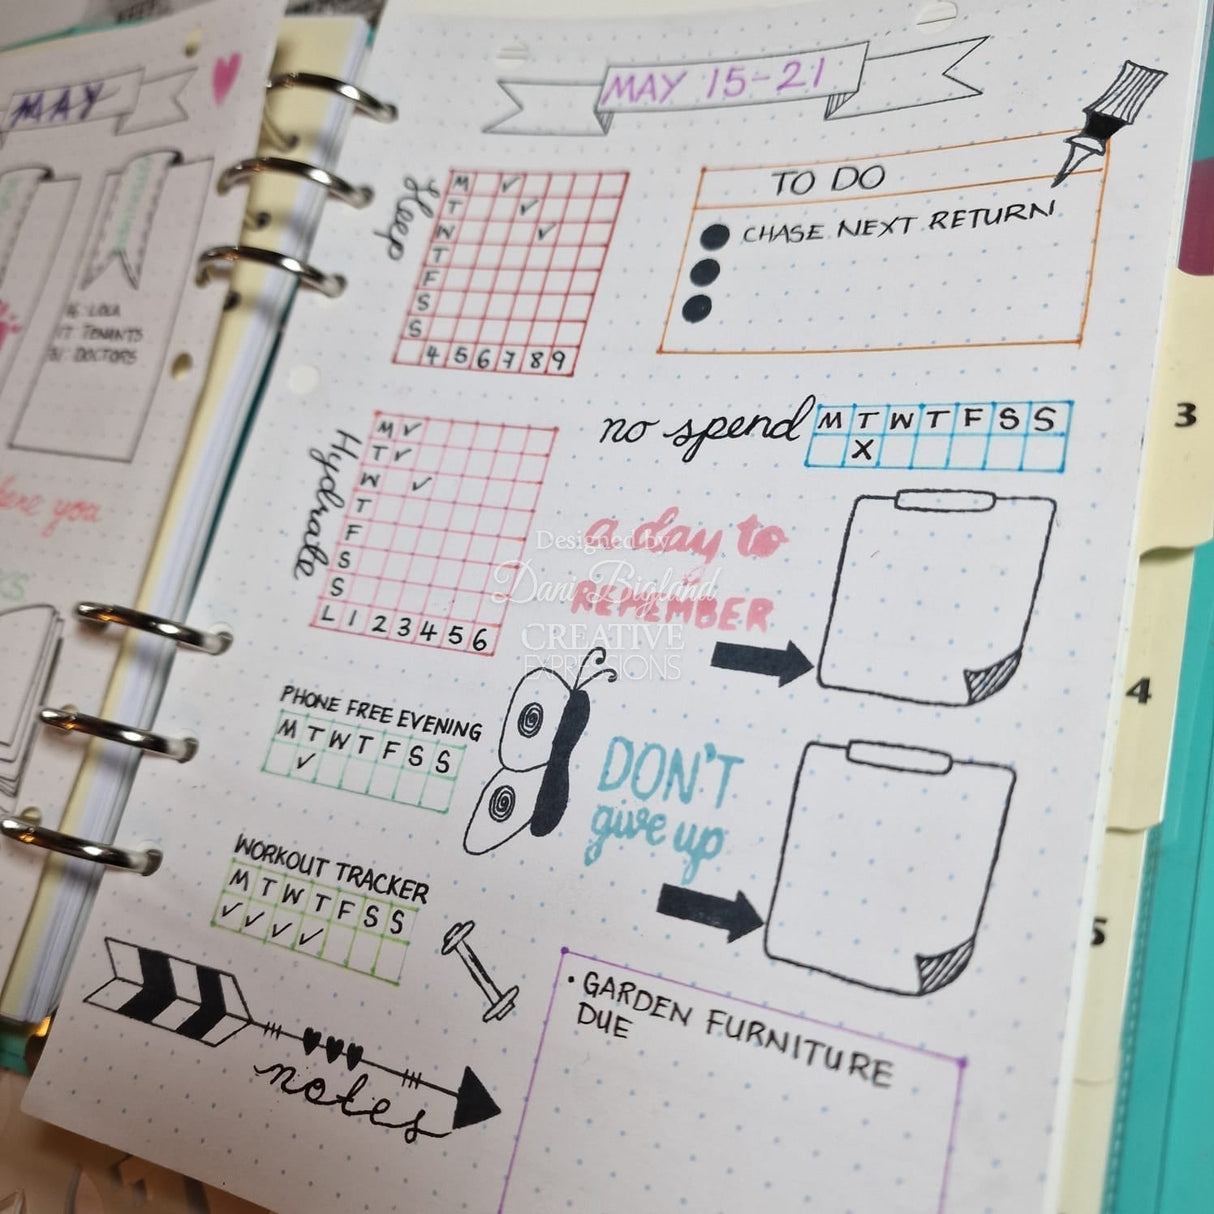 MAY
16: LOLA
17: TENANTS
31: DOCTORS
here you
MAY 15-21
Sleep
M
T
W
T
F
S
S
4 5 6 7 8 9
TO DO
CHASE NEXT RETURN
Hydrate
M
T
W
T
F
S
S
L 1 2 3 4 5 6
no spend
M T W T F S S
X
a day to
REMEMBER
Designed by
Dani Bigland
CREATIVE
EXPRESSIONS
PHONE FREE EVENING
M T W T F S S
DON'T
give up
WORKOUT TRACKER
M T W T F S S
notes
• GARDEN FURNITURE
DUE
3
4
5